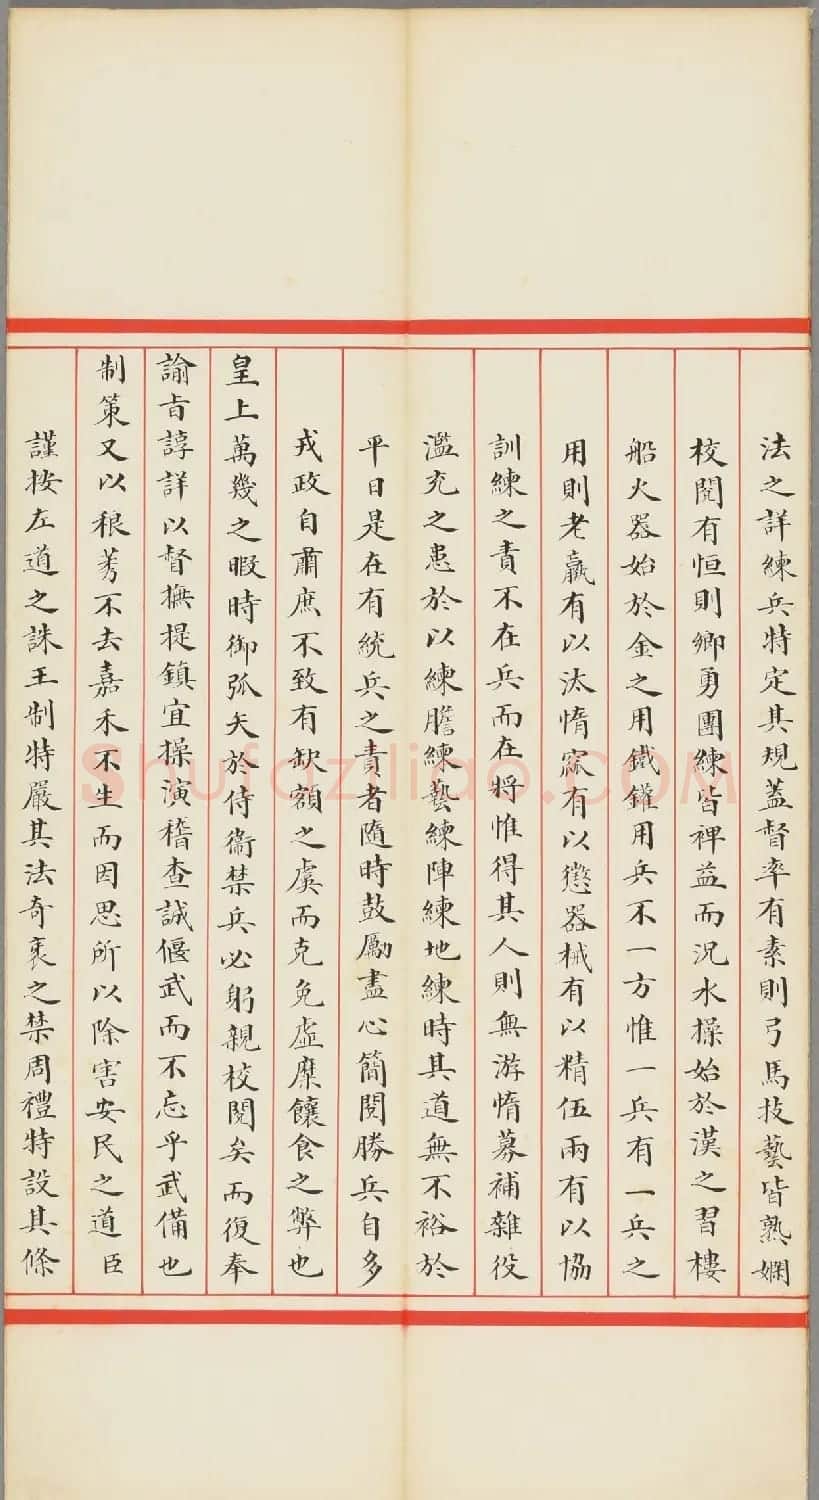 法之詳練兵特定其規蓋督率有素則弓馬技藝皆熟嫻
校閱有恒則鄉勇團練皆裨益而況水操始於漢之習樓
船火器始於金之用鐵鑵用兵不一方惟一兵有一兵之
用則老羸有以汰惰窳有以懲器械有以精伍兩有以協
訓練之責不在兵而在將惟得其人則無游惰募補雜役
濫充之患於以練膽練藝練陣練地練時其道無不裕於
平日是在有統兵之責者隨時鼓勵盡心簡閱勝兵自多
戎政自肅庶不致有缺額之虞而克免虛糜饟食之弊也
皇上萬幾之暇時御弧矢於侍衞禁兵必躬親校閱矣而復奉
諭旨諄詳以督撫提鎮宜操演稽查誠偃武而不忘乎武備也
制策又以稂莠不去嘉禾不生而因思所以除害安民之道臣
謹按左道之誅王制特嚴其法奇衺之禁周禮特設其條
Shufaziliao.COM